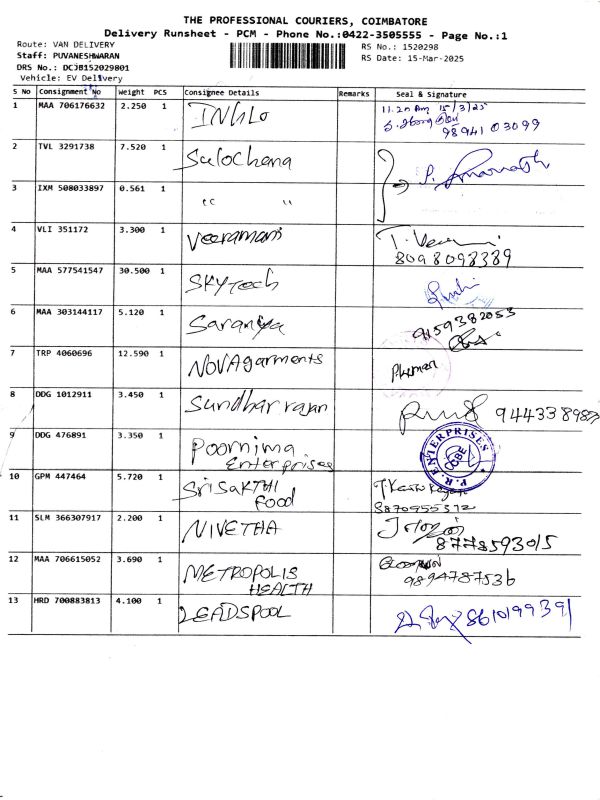 THE PROFESSIONAL COURIERS, COIMBATORE
Delivery Runsheet - PCM - Phone No.:0422-3505555 - Page No.:1
Route: VAN DELIVERY
Staff: PUVANESHWARAN
DRS No.: DCJB152029801
Vehicle: EV Delivery
RS No.: 1520298
RS Date: 15-Mar-2025
S No Consignment No Weight PCS Consignee Details Remarks Seal & Signature
1 MAA 706176632 2.250 1 INGLO 11.20 Am 15/3/25
98941 03099
2 TVL 3291738 7.520 1 Sulochana
3 IXM 508033897 0.561 1 " "
4 VLI 351172 3.300 1 Veeramani
8098098339
5 MAA 577541547 30.500 1 SKYTech
6 MAA 303144117 5.120 1 Saranya 9159382053
7 TRP 4060696 12.590 1 NOVAgarments
8 DDG 1012911 3.450 1 Sundharrajan
9 DDG 476891 3.350 1 Poornima
Enterprises
P.R. ENTERPRISES
CBE
10 GPM 447464 5.720 1 Sri SAKTHI
Food
8870955312
11 SLM 366307917 2.200 1 NIVETHA
8778593015
12 MAA 706615052 3.690 1 METROPOLIS
HEALTH
9894787536
13 HRD 700883813 4.100 1 LEADSPOOL 8610199391